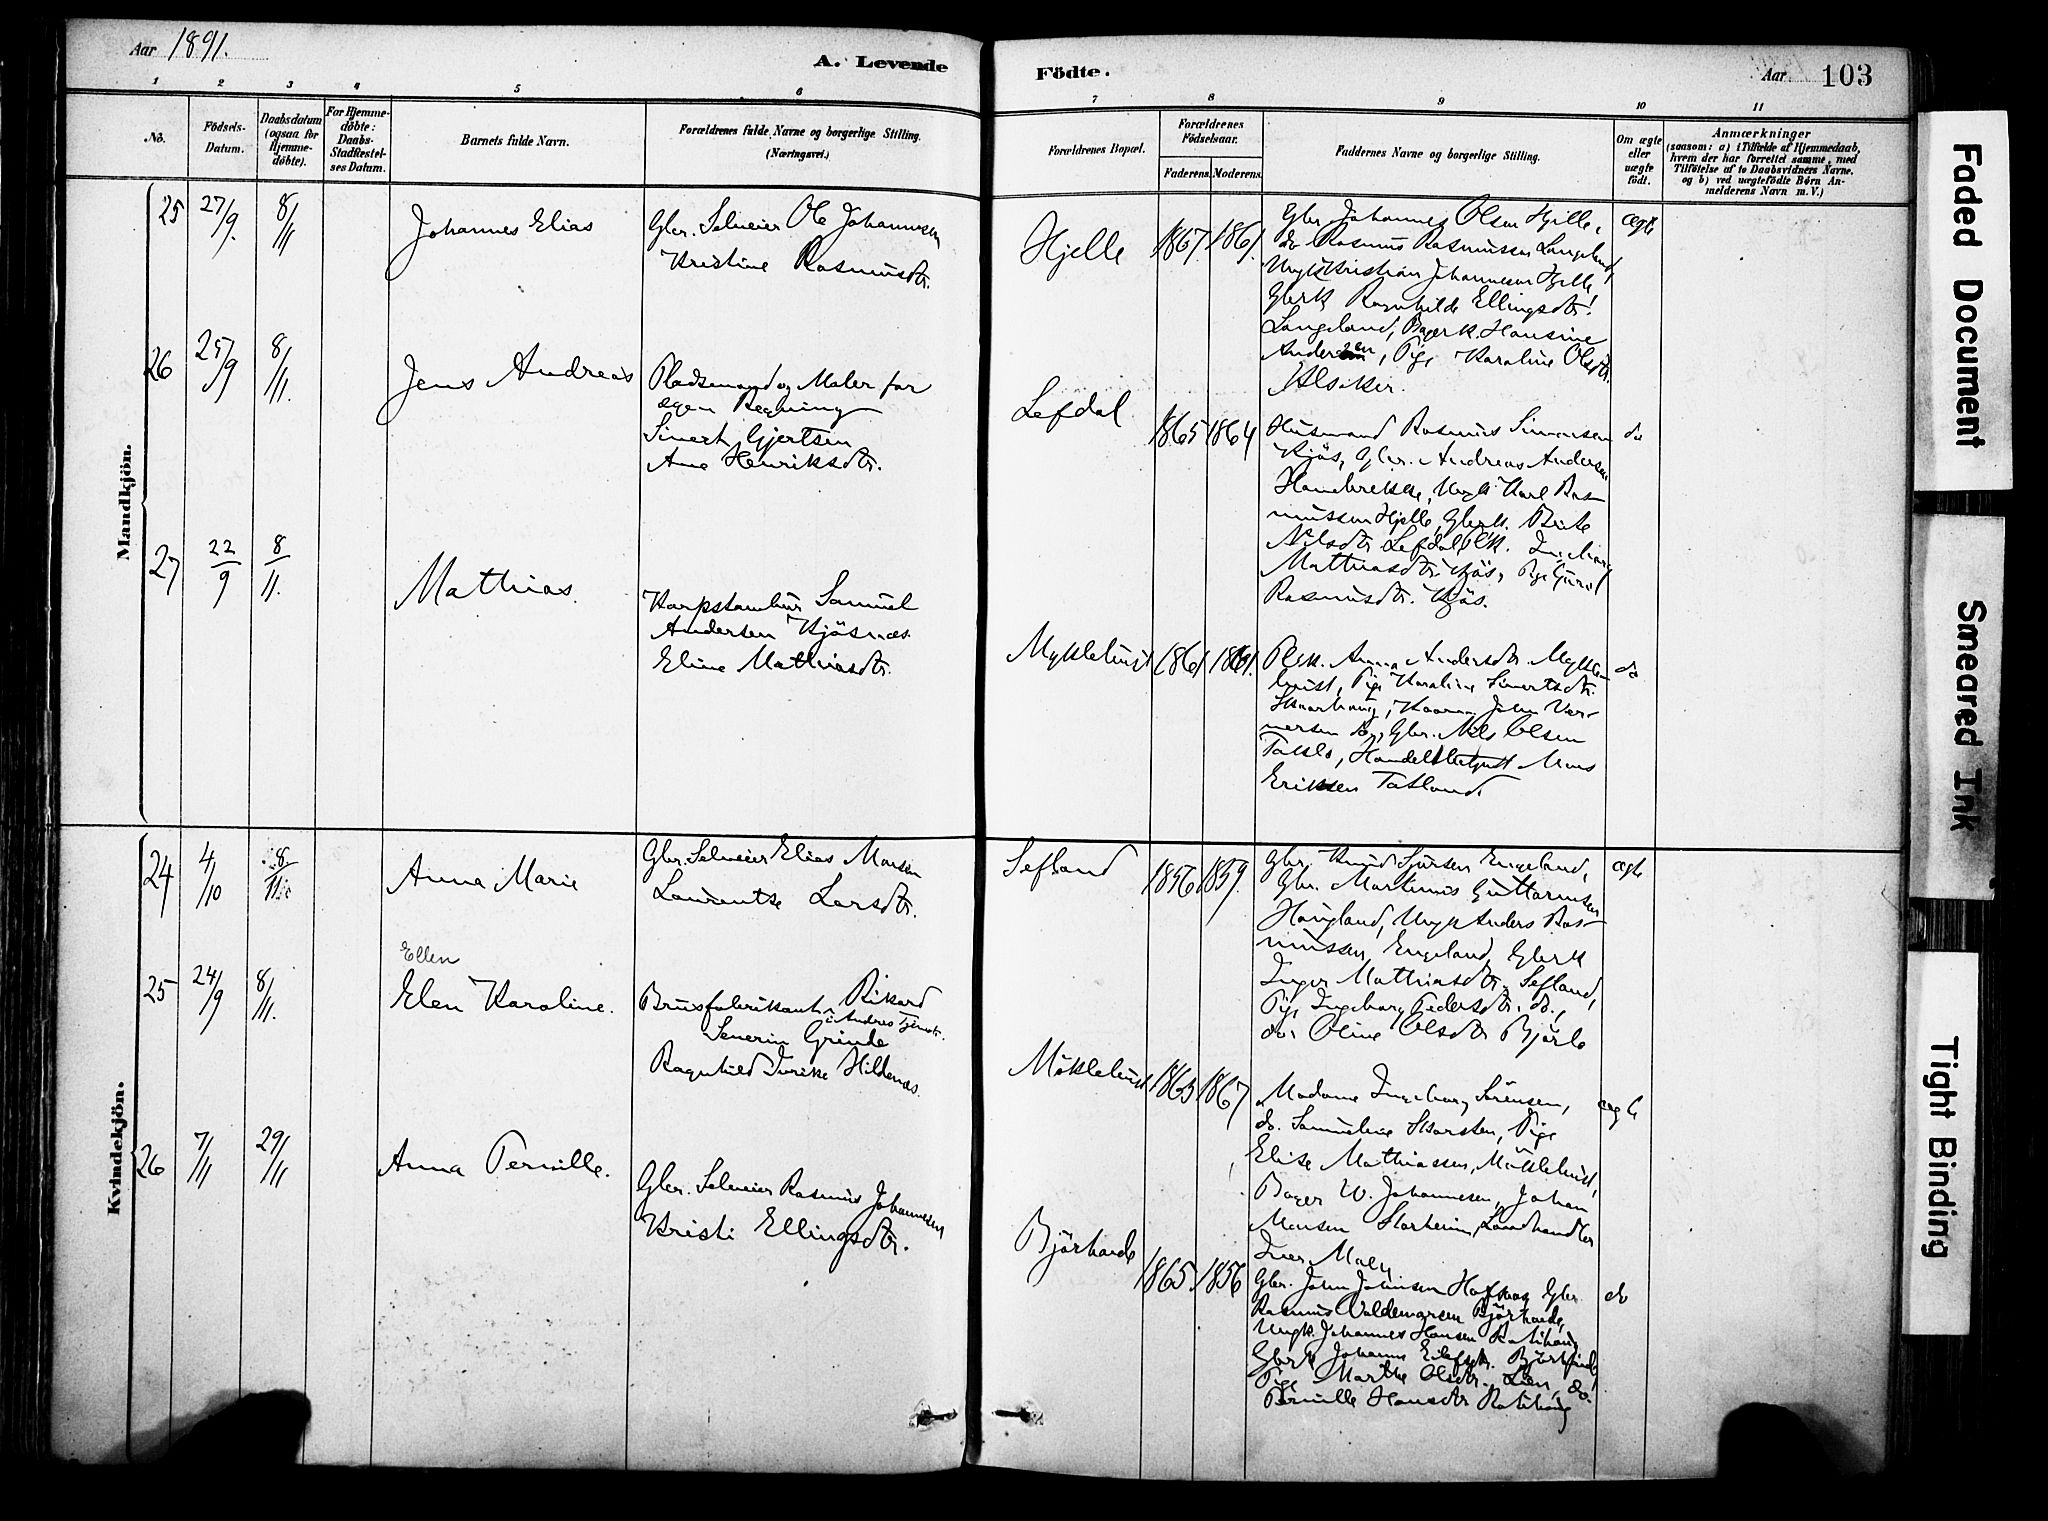 Aar 1891.
A. Levende
Födte.
Aar 103
1 2 3 4 5 6
7 8 9 10 11
No.
Födsels-
Datum.
Daabsdatum
(ogsaa for
Hjemme-
döbte).
For Hjemme-
döbte:
Daabs-
Stadfæstel-
ses Datum.
Barnets fulde Navn.
Forældrenes fulde Navne og borgerlige Stilling.
(Næringsvei.)
Forældrenes Bopæl.
Forældrenes
Födselsaar.
Faderens. Moderens.
Faddernes Navne og borgerlige Stilling.
Om ægte
eller
uægte
födt.
Anmærkninger
(saasom: a) i Tilfælde af Hjemmedaab,
hvem der har forrettet samme, med
Tilföielse af to Daabsvidners Navne,
og b) ved uægtefödte Børn An-
melderens Navn m. V.)
Mandkjön.
25 27/9. 8/11 Johannes Elias
Gbr. Selveier Ole Johannesen
Kristine Rasmusdtr.
Hjelle 1867. 1861.
Gbr. Johannes Olsen Hjelle,
do Rasmus Rasmussen Langeland,
Ungk. Kristian Johannesen Hjelle,
Gbrk Ragnhilde Ellingsdtr.
Langeland, Bagerk. Hansine
Andersen, Pige Karoline Olsdtr.
Alsaker.
ægte
26 25/9 8/11. Jens Andreas
Pladsmand og Maler for
egen Regning
Sivert Gjertsen
Ane Henriksdtr.
Lefdal 1865 1864
Husmand Rasmus Simonsen
Kjös, Gbr. Andreas Andersen
Hambrekke, Ungk. Karl Ras-
mussen Hjelle, Gbrk. Brite
Nilsdtr Lefdal, Plk. Ingeborg
Mathiasdtr. Kjös, Pige Guril
Rasmusdtr. Kjös.
do
27 22/9 8/11. Mathias.
Korpstambur Samuel
Andersen Kjösnæs.
Eline Mathiasdtr.
Myklebust 1861 1861.
Plsk. Anna Andersdtr. Mykle-
bust, Pige Karoline Sivertsdtr.
Skaarhaug,
Gbr. Nils Olsen
Mons
Eriksen Totland.
do
Kvindekjön.
24 4/10 8/11 Anna Marie
Gbr. Selveier Elias Monsen
Laurentse Larsdtr.
Sefland 1856 1859.
Gbr. Knud Sjursen Engeland,
Gbr. Martinus Guttormsen
Haugland, Ungk Anders Ras-
mussen, Engeland, Gbrk
Inger Mathiasdtr. Sefland,
Pige Ingeborg Pedersdtr. do.,
do. Oline Olsdtr Bjørlo
ægte
Ellen
25 24/9 8/11. Elen Karoline.
Brusfabrikant Rikard
Severin Grinde
Ragnhild Hildenæs.
Möklebust 1865 1867
Madame Ingeborg Sörensen,
do. Samueline Skorsten, Pige
Elise Mathiassen, Möklebust,
Bager W. Johannesen, Johan
Monsen Starheim, Landhandler
Iver Maly
ægte
26 7/11 29/11 Anna Pernille.
Gbr. Selveier Rasmus Johannesen
Kristi Ellingsdtr.
Björhovde 1865. 1856
Gbr. John Johnsen Gbr.
Rasmus Valdemarsen Björhovde,
Ungk. Johannes Hansen
Gbrk Johanne
Pige Marthe Olsdtr. Lien, do.
Pernille Hansdtr
do
Faded Document
Smeared Ink
Tight Binding